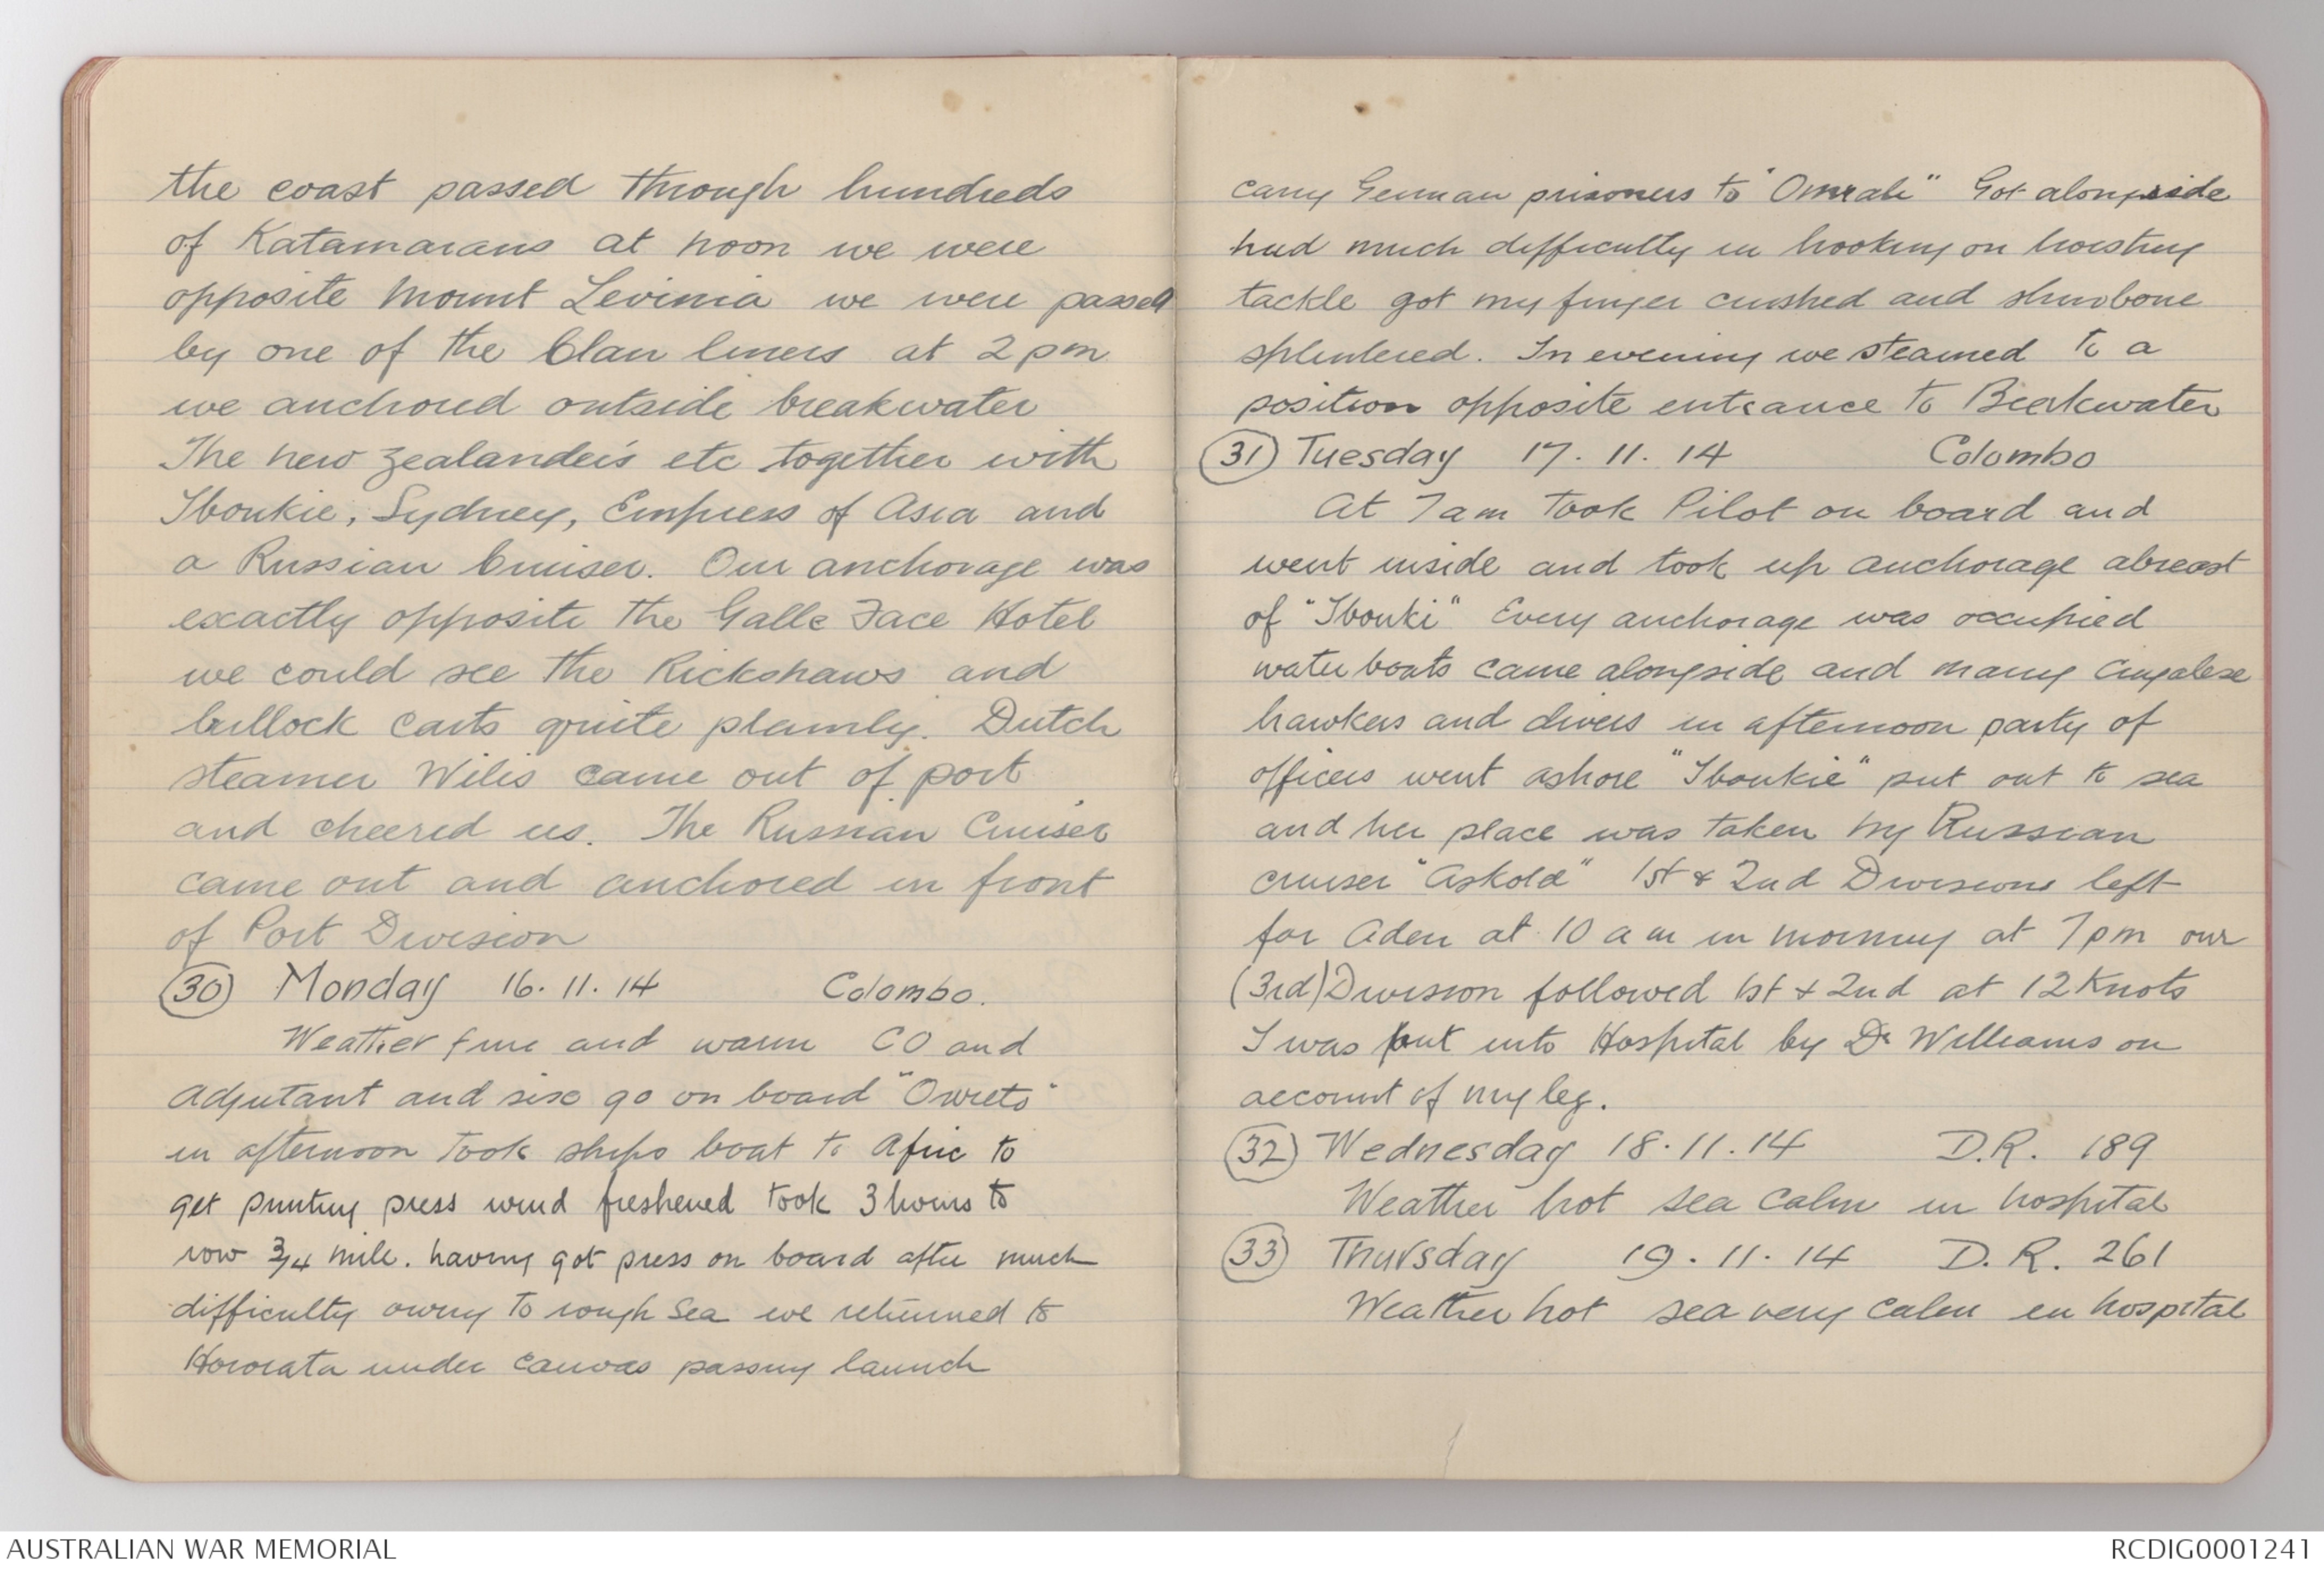 the coast passed through hundreds
of Katamarans at noon we were
opposite Mount Levinia we were passed
by one of the Clan liners at 2 pm
we anchored outside breakwater
The new zealanders etc together with
Iboukie, Sydney, Empress of Asia and
a Russian Cruiser. Our anchorage was
exactly opposite the Galle Face Hotel
we could see the Rickshaws and
bullock carts quite plainly. Dutch
steamer Wilis came out of port
and cheered us. The Russian Cruiser
came out and anchored in front
of Port Division
(30) Monday 16.11.14 Colombo.
Weather fine and warm CO and
Adjutant and six go on board "Orvieto"
in afternoon took ships boat to Afric to
get printing press wind freshened took 3 hours to
row 3/4 mile. having got press on board after much
difficulty owing to rough sea we returned to
Hororata under canvas passing launch
carry German prisoners to "Omrah" Got alongside
had much difficulty in hooking on hoisting
tackle got my finger crushed and shinbone
splintered. In evening we steamed to a
position opposite entrance to Breakwater
(31) Tuesday 17.11.14 Colombo
At 7 am took Pilot on board and
went inside and took up anchorage abreast
of "Ibouki" Every anchorage was occupied
water boats came alongside and many Cingalese
hawkers and divers in afternoon party of
officers went ashore "Iboukie" put out to sea
and her place was taken by Russian
cruiser "Askold" 1st & 2nd Divisions left
for Aden at 10 am in morning at 7pm our
(3rd) Division followed 1st & 2nd at 12 Knots
I was put into Hospital by Dr Williams on
account of my leg.
(32) Wednesday 18.11.14 D.R. 189
Weather hot sea calm in hospital
(33) Thursday 19.11.14 D.R. 261
Weather hot sea very calm in hospital
AUSTRALIAN WAR MEMORIAL
RCDIG0001241